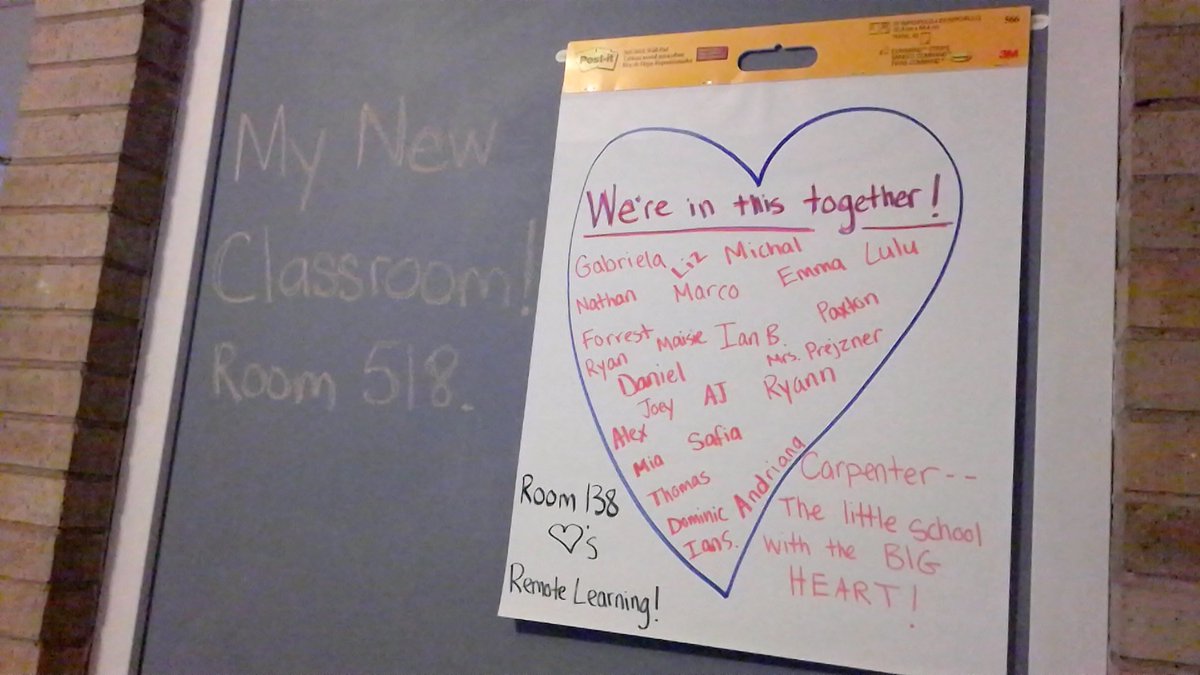 My New
Classroom!
Room 518.
Post-it
566
3M
We're in this together!
Gabriela Liz Michal
Emma Lulu
Nathan Marco
Paxton
Forrest Maisie Ian B.
Ryan Mrs. Prejzner
Daniel
Joey AJ Ryann
Alex Safia
Mia
Thomas
Dominic Andriana
Ian S.
Room 138
♡'s
Remote Learning!
Carpenter--
The little school
with the BIG
HEART!